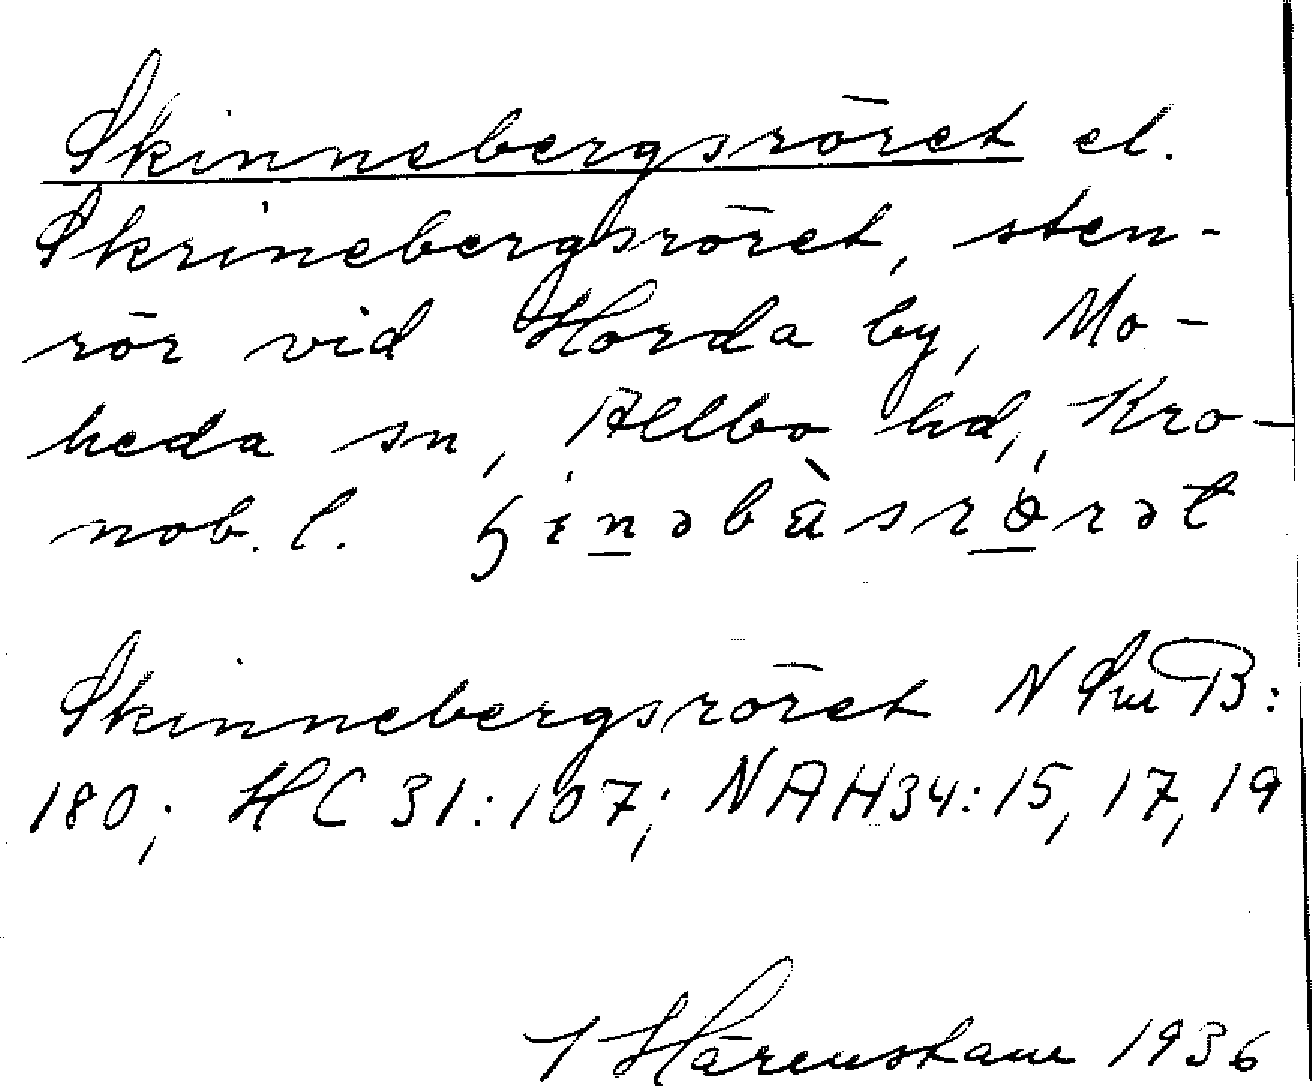 Skinnebergsröret el.
Skrinebergsröret, sten-
rör vid Horda by, Mo-
heda sn, Allbo hd, Kro-
nob. l. 
Skinnebergsröret N Sm B:
180; HC 31:107; NAH34:15, 17, 19
Härenstam 1936